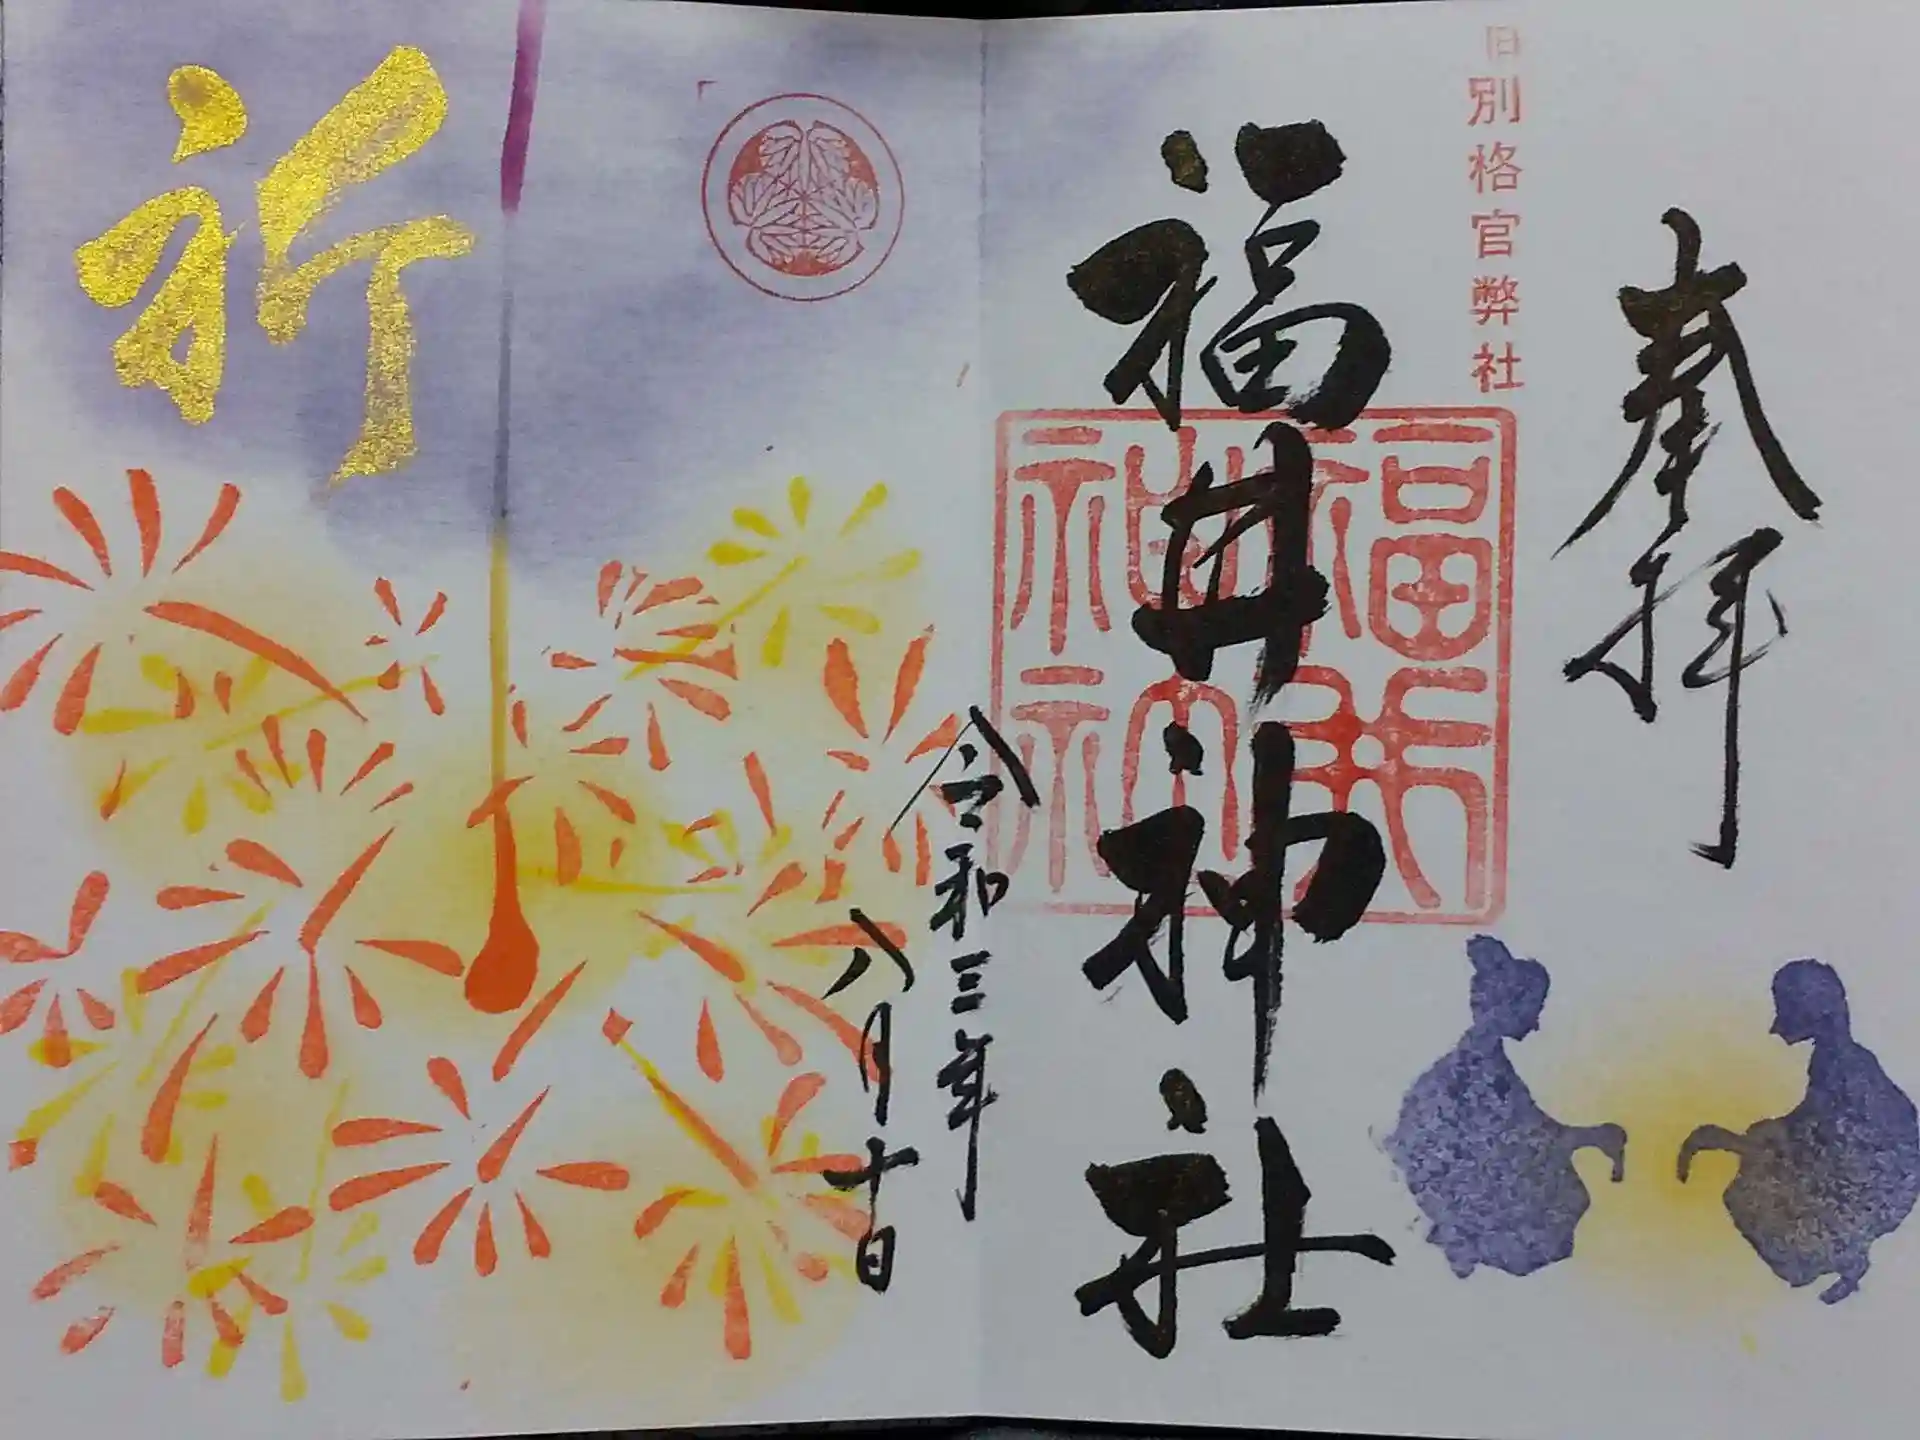 奉拝
旧別格官幣社
福井神社
福井神社
令和三年
八月十日
祈